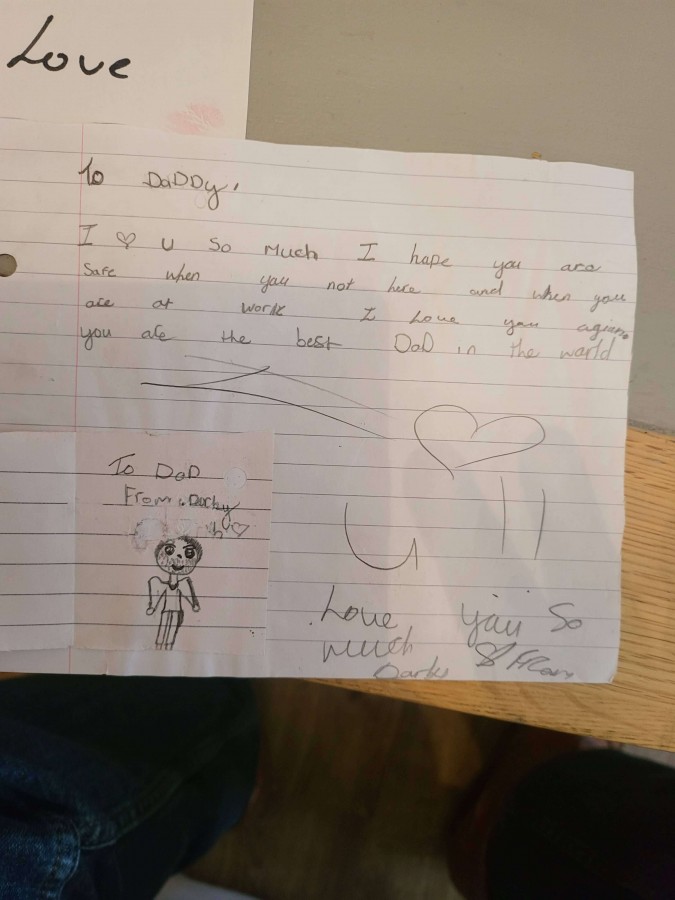 Love
To DaDDy,
I ♡ u so much I hope you are
safe when you not here and when you
are at work I Love you agien.
you are the best DaD in the world
To DaD
From Darby
U
Love you so
much From
Darby